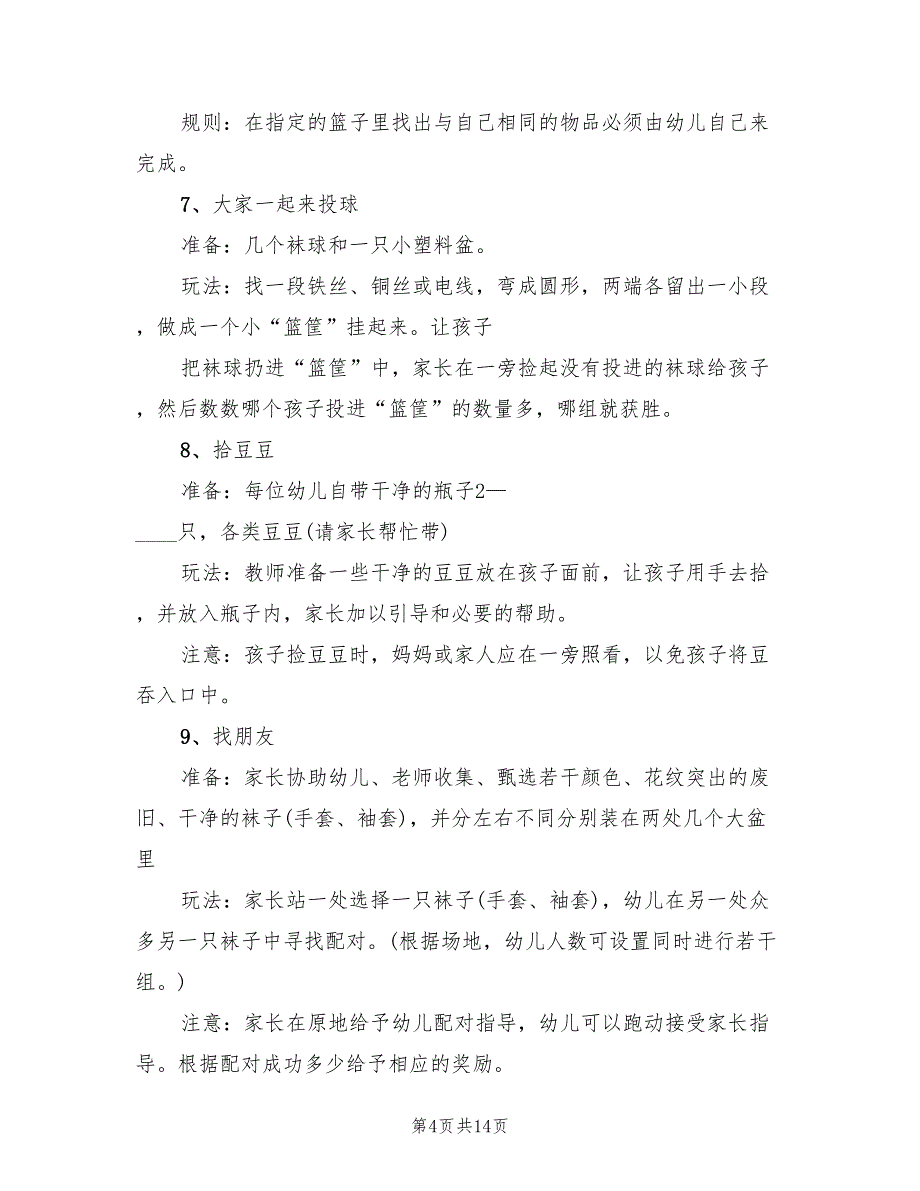 规则：在指定的篮子里找出与自己相同的物品必须由幼儿自己来
完成。
7、大家一起来投球
准备：几个袜球和一只小塑料盆。
玩法：找一段铁丝、铜丝或电线，弯成圆形，两端各留出一小段
，做成一个小“篮筐”挂起来。让孩子
把袜球扔进“篮筐”中，家长在一旁捡起没有投进的袜球给孩子
，然后数数哪个孩子投进“篮筐”的数量多，哪组就获胜。
8、拾豆豆
准备：每位幼儿自带干净的瓶子2—
____只，各类豆豆(请家长帮忙带)
玩法：教师准备一些干净的豆豆放在孩子面前，让孩子用手去拾
，并放入瓶子内，家长加以引导和必要的帮助。
注意：孩子捡豆豆时，妈妈或家人应在一旁照看，以免孩子将豆
吞入口中。
9、找朋友
准备：家长协助幼儿、老师收集、甄选若干颜色、花纹突出的废
旧、干净的袜子(手套、袖套)，并分左右不同分别装在两处几个大盆
里
玩法：家长站一处选择一只袜子(手套、袖套)，幼儿在另一处众
多另一只袜子中寻找配对。(根据场地，幼儿人数可设置同时进行若干
组。)
注意：家长在原地给予幼儿配对指导，幼儿可以跑动接受家长指
导。根据配对成功多少给予相应的奖励。
第4页共14页